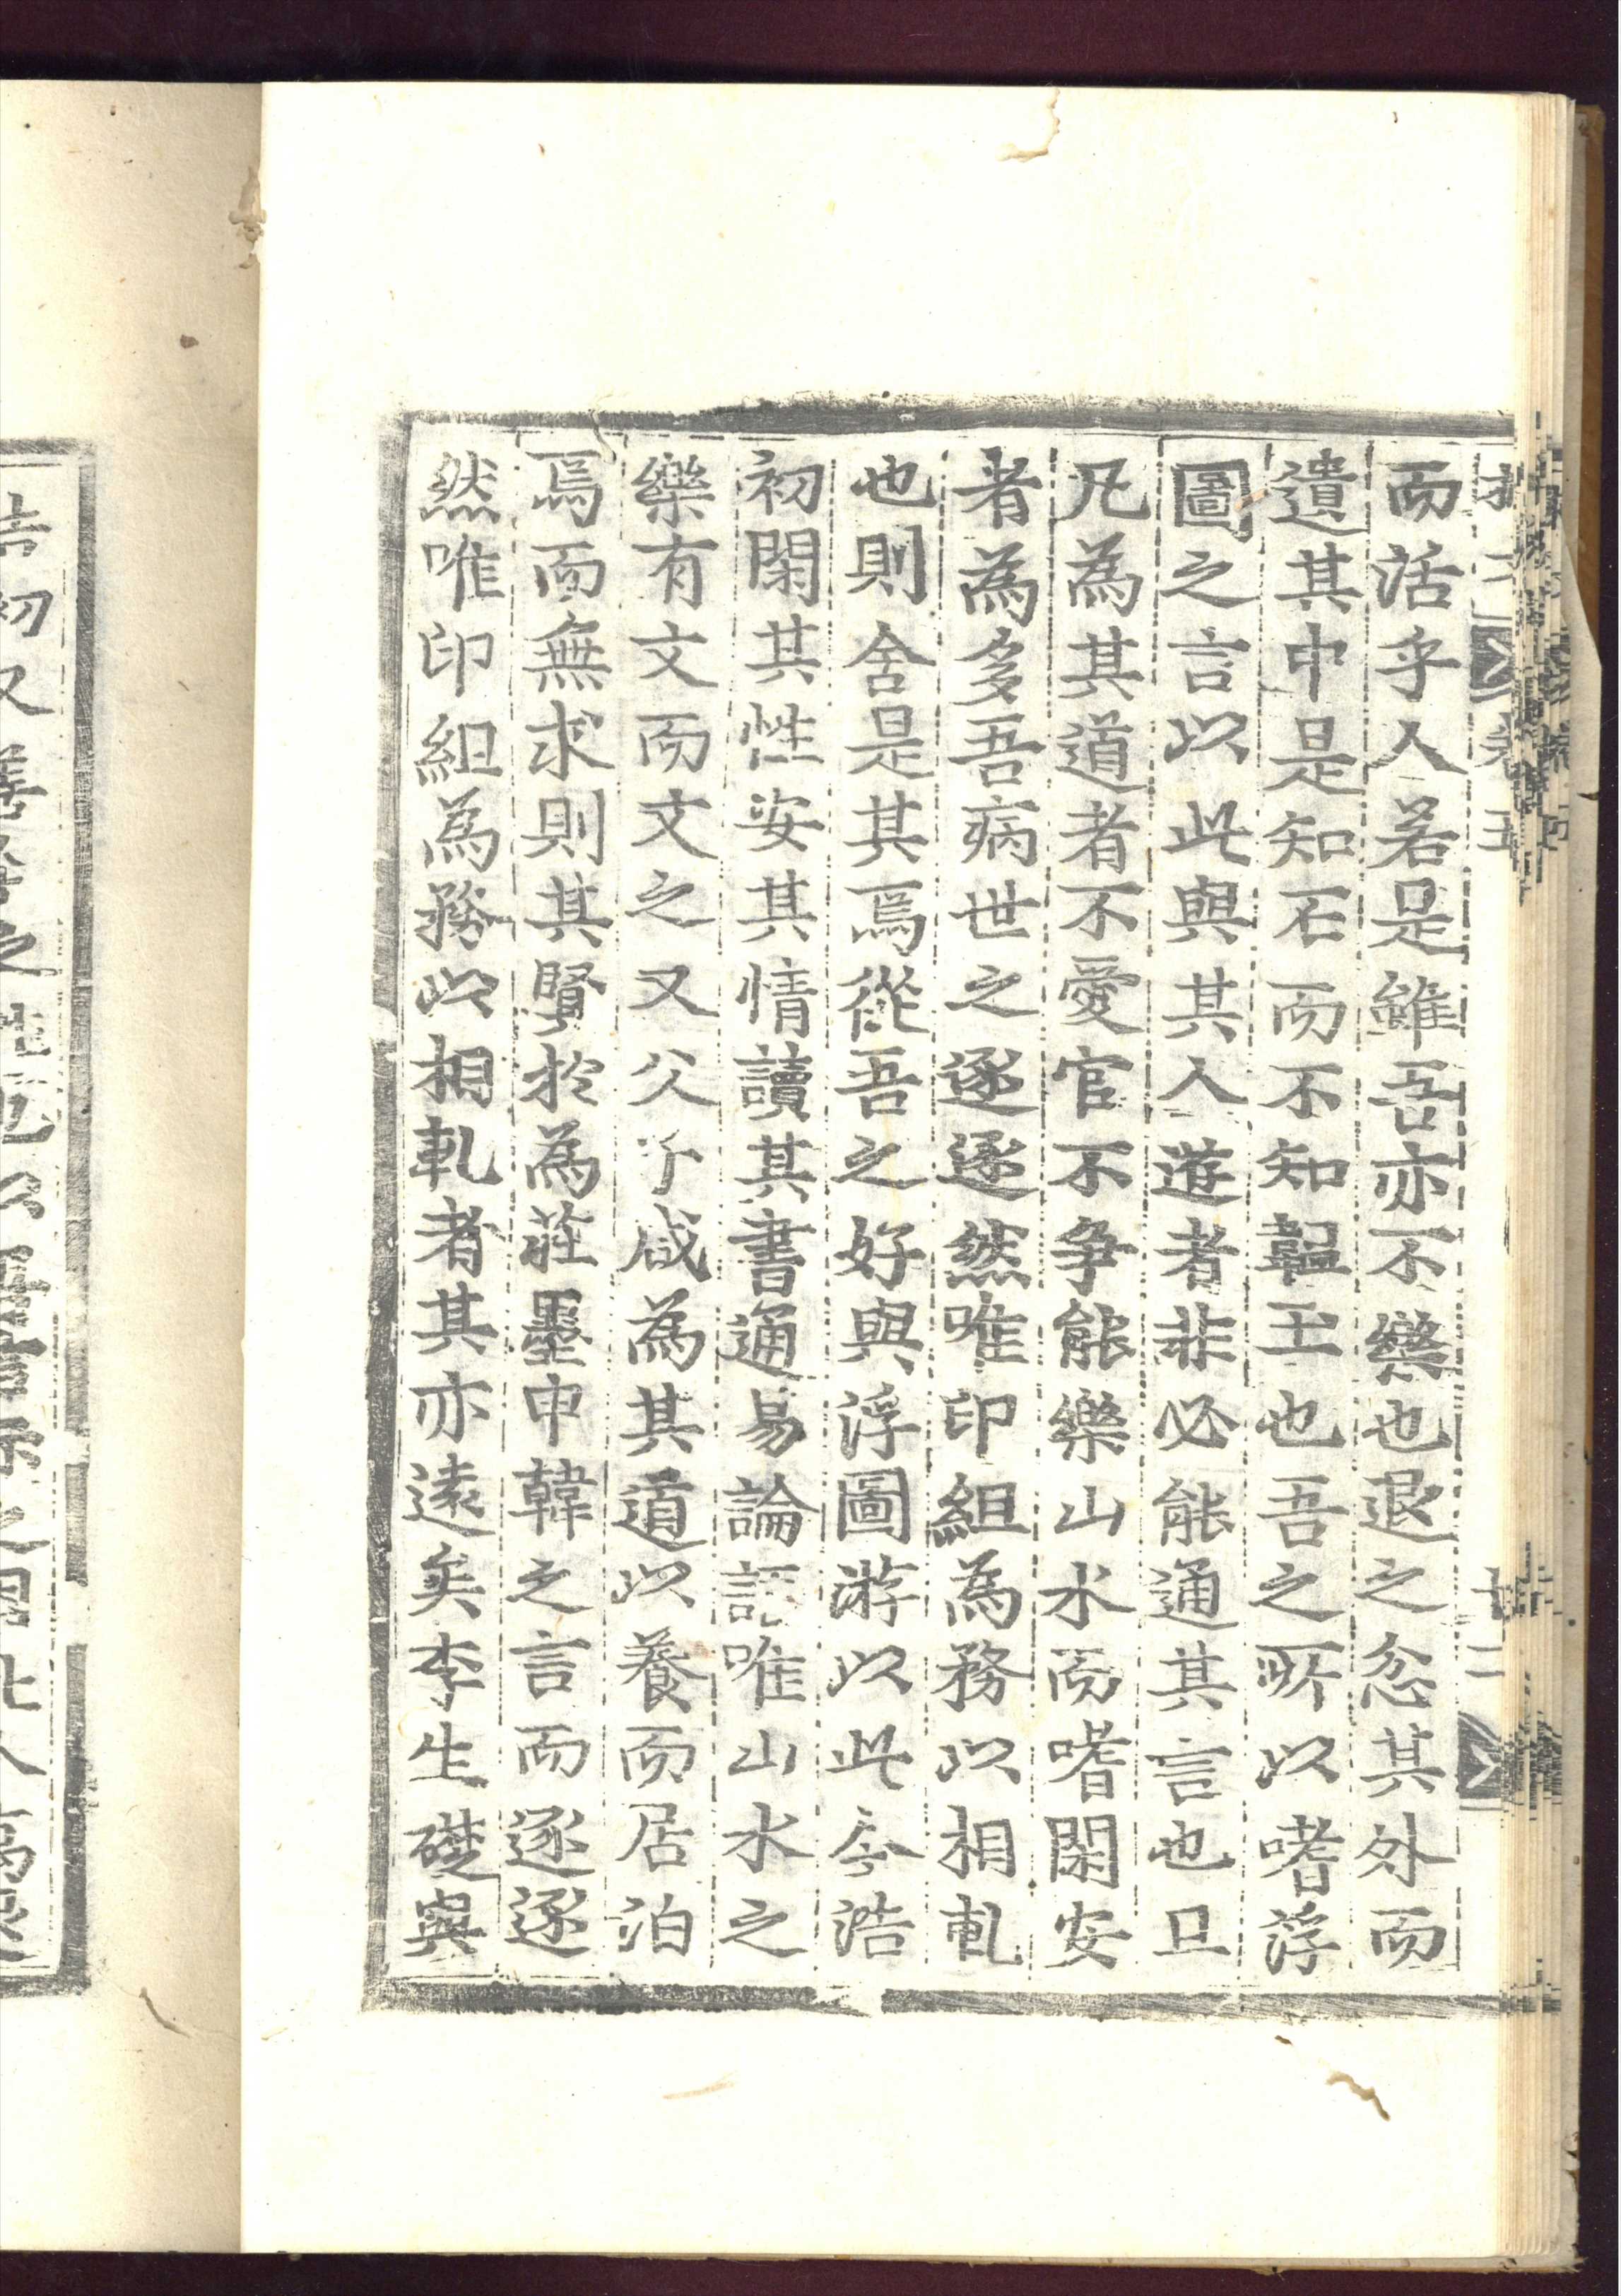 而活乎人若是雖吾亦不樂也退之忿其外而
遺其中是知石而不知韞玉也吾之所以嗜浮
圖之言以此與其人遊者非必能通其言也且
凡為其道者不愛官不爭能樂山水而嗜閑安
者為多吾病世之逐逐然唯印組為務以相軋
也則舍是其焉從吾之好與浮圖游以此今浩
初閑其性安其情讀其書通易論語唯山水之
樂有文而文之又父子咸為其道以養而居泊
焉而無求則其賢於為莊墨申韓之言而逐逐
然唯印組為務以相軋者其亦遠矣李生礎與